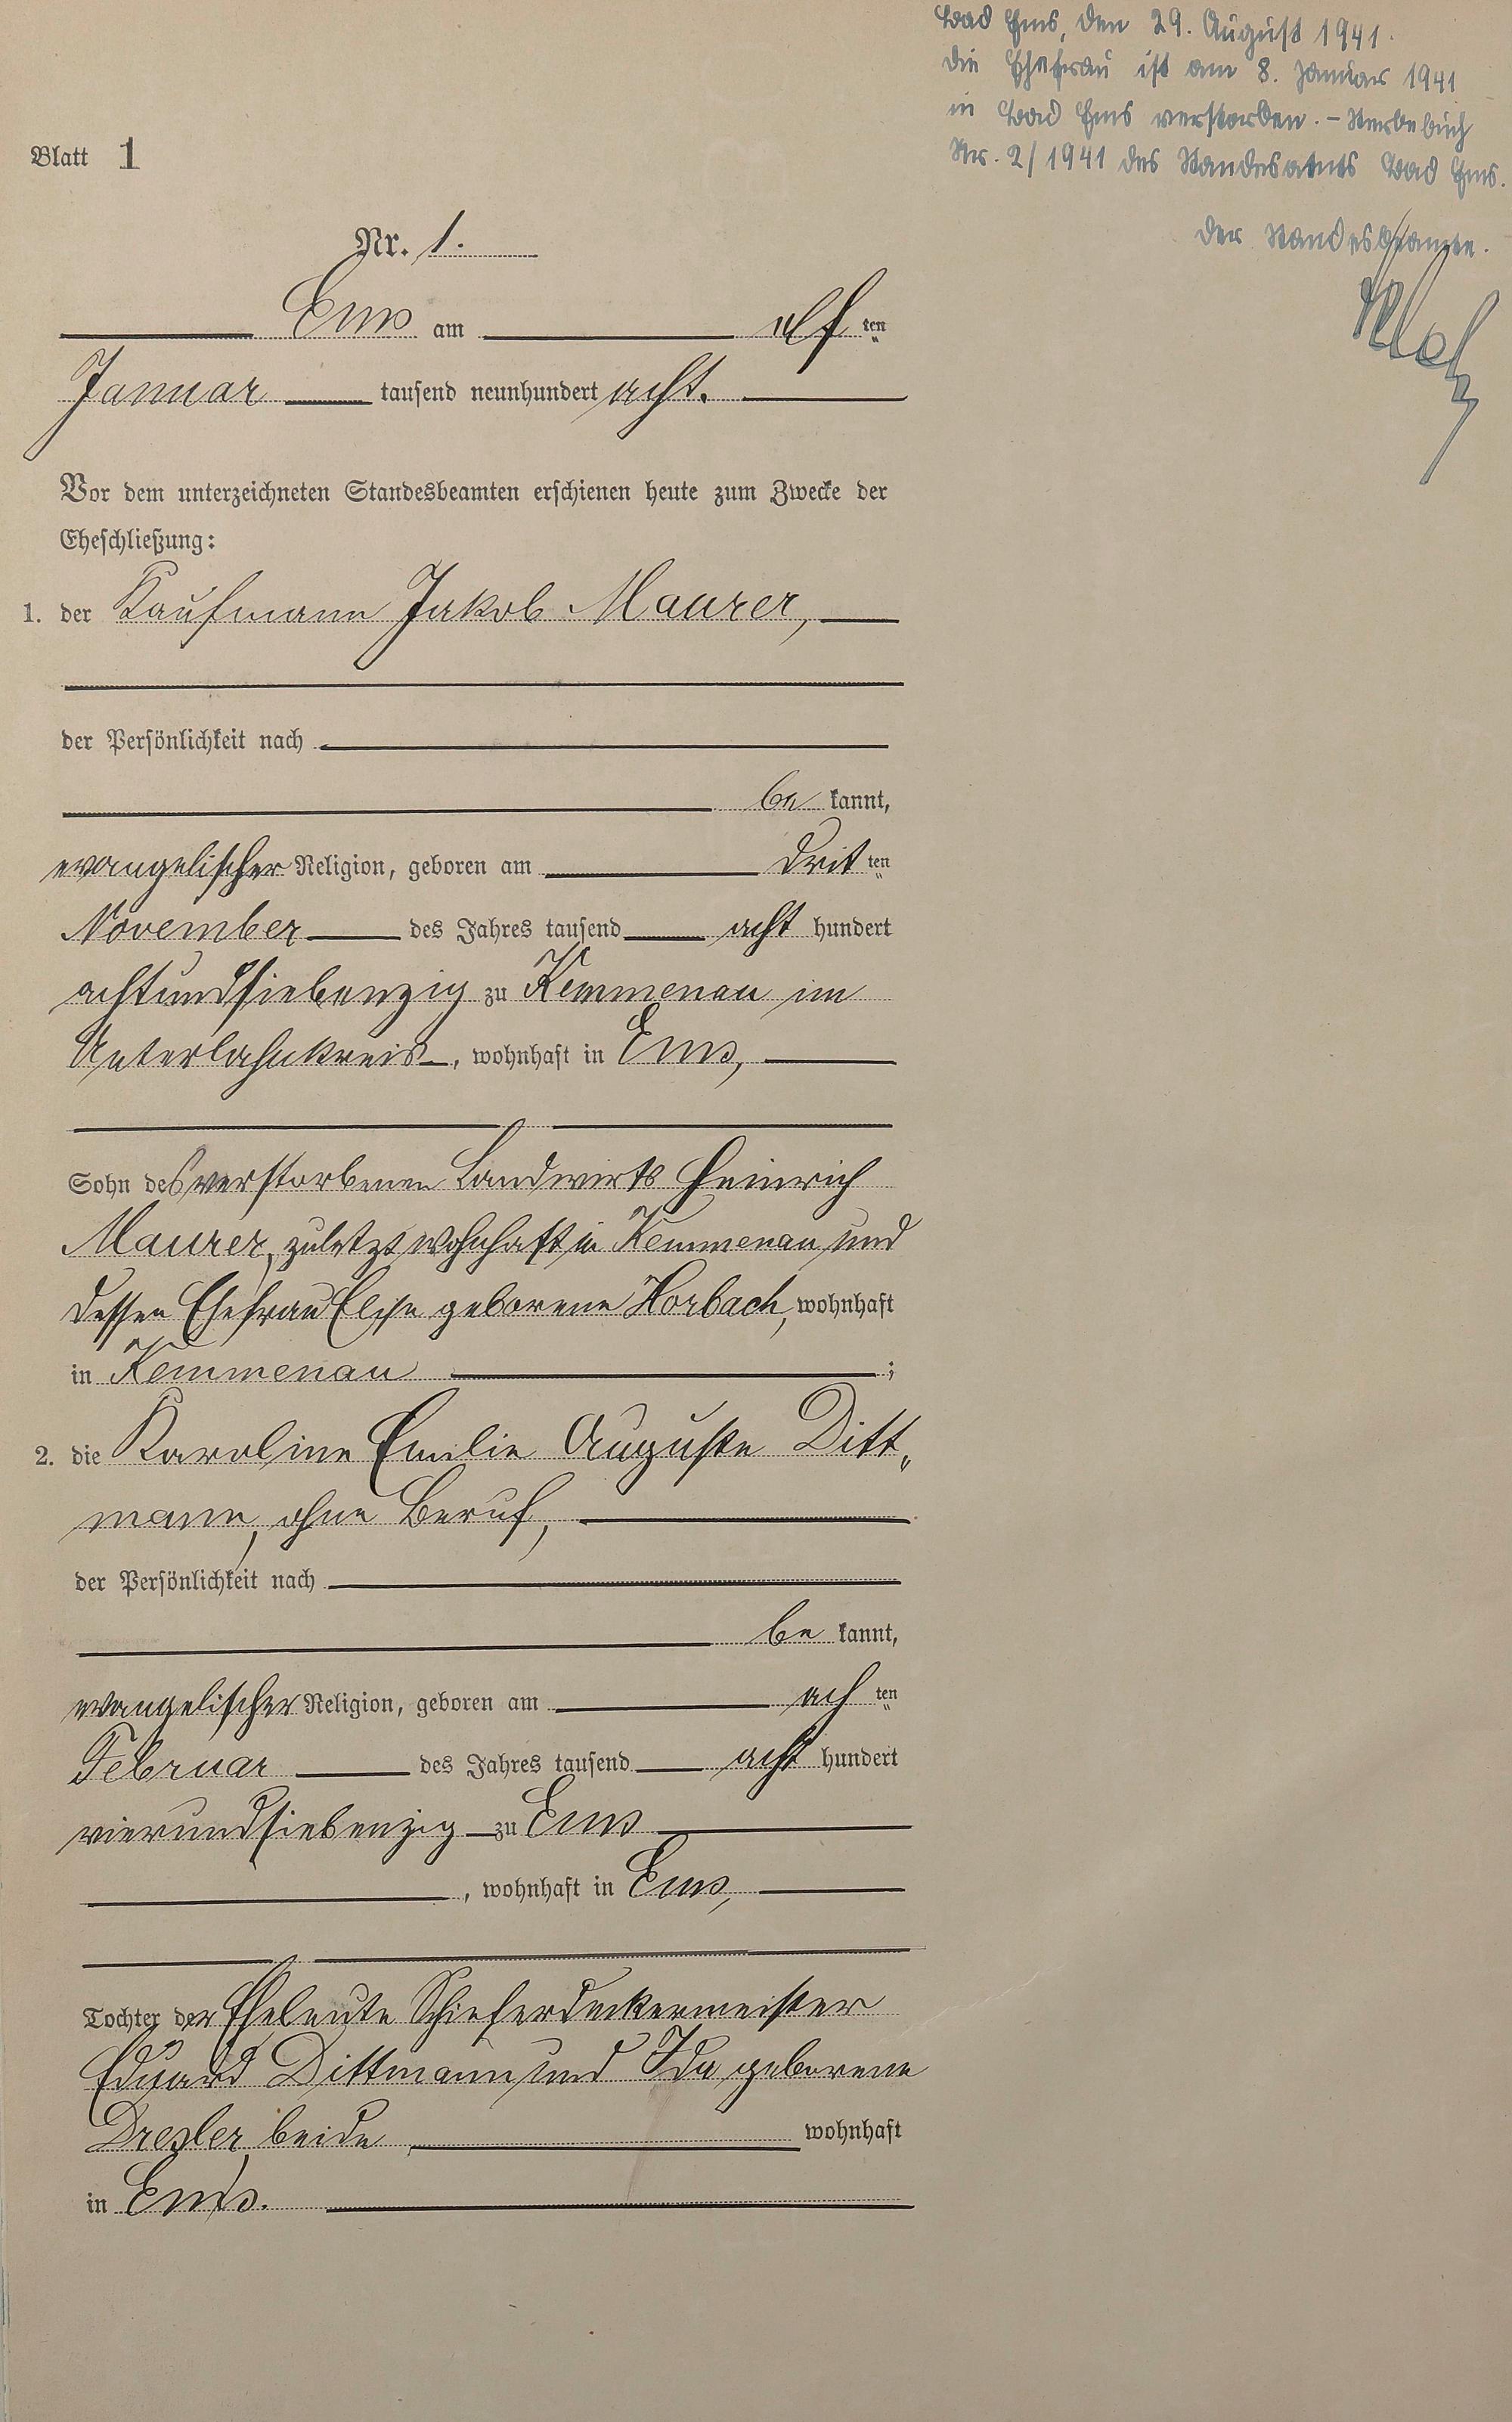 Bad Ems, den 29. August 1941.
Die Ehefrau ist am 8. Januar 1941
in Bad Ems verstorben. – Sterbebuch
Nr. 2/1941 des Standesamts Bad Ems.
Der Standesbeamte.
Blatt 1
Nr. 1.
Ems am elf ten
Januar tausend neunhundert acht.
Vor dem unterzeichneten Standesbeamten erschienen heute zum Zwecke der
Eheschließung:
1. der Kaufmann Jakob Maurer,
der Persönlichkeit nach
be kannt,
evangelischer Religion, geboren am drit ten
November des Jahres tausend acht hundert
achtundsiebenzig zu Kemmenau im
Unterlahnkreis, wohnhaft in Ems,
Sohn des verstorbenen Landwirts Heinrich
Maurer, zuletzt wohnhaft in Kemmenau und
dessen Ehefrau Elise geborene Horbach, wohnhaft
in Kemmenau ;
2. die Karoline Emilie Auguste Ditt„
mann, ohne Beruf,
der Persönlichkeit nach
be kannt,
evangelischer Religion, geboren am ach ten
Februar des Jahres tausend acht hundert
vierundsiebenzig zu Ems
, wohnhaft in Ems,
Tochter der Eheleute Schieferdeckermeister
Eduard Dittmann und Ida geborene
Dresler, beide wohnhaft
in Ems.